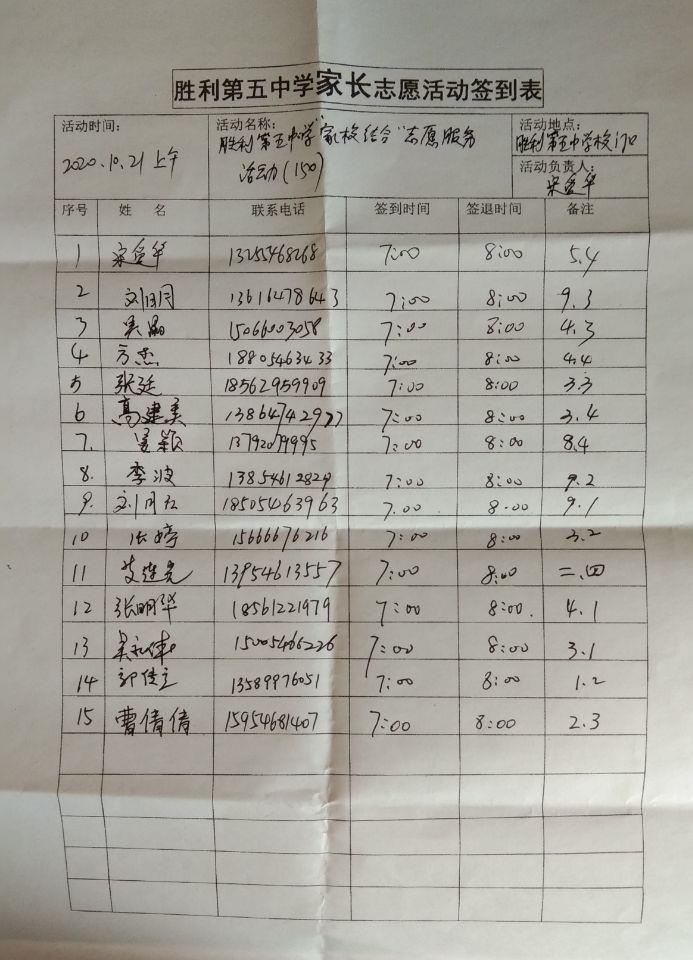 胜利第五中学家长志愿活动签到表
活动时间: 活动名称: 活动地点:
2020.10.21上午 胜利第五中学"家校结合"志愿服务 胜利第五中学校门口
活动(150) 活动负责人:
序号 姓 名 联系电话 签到时间 签退时间 备注
1 13255468268 7:00 8:00 5.4
2 13616478643 7:00 8:00 9.3
3 吴晶 15066003058 7:00 8:00 4.3
4 方杰 18805463433 7:00 8:00 4.4
5 张廷 18562959909 7:00 8:00 3.3
6 高建美 13864742977 7:00 8:00 3.4
7. 13792079995 7:00 8:00 8.4
8. 李波 13854612829 7:00 8:00 9.2
9. 18505463963 7:00 8:00 9.1
10 张婷 15666676216 7:00 8:00 3.2
11 13954613557 7:00 8:00 二.四
12 张明华 18561221979 7:00 8:00. 4.1
13 15005466226 7:00 8:00 3.1
14 13589976051 7:00 8:00 1.2
15 曹倩倩 15954681407 7:00 8:00 2.3